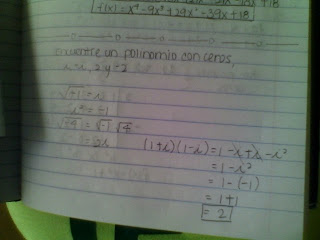 f(x) = x⁴ - 9x³ + 29x² - 39x + 18
encuentre un polinomio con ceros,
i² = -1
√-4 = √-1 √4
= 2i
(1+i)(1-i) = 1 - i + i - i²
= 1 - i²
= 1 - (-1)
= 1 + 1
= 2